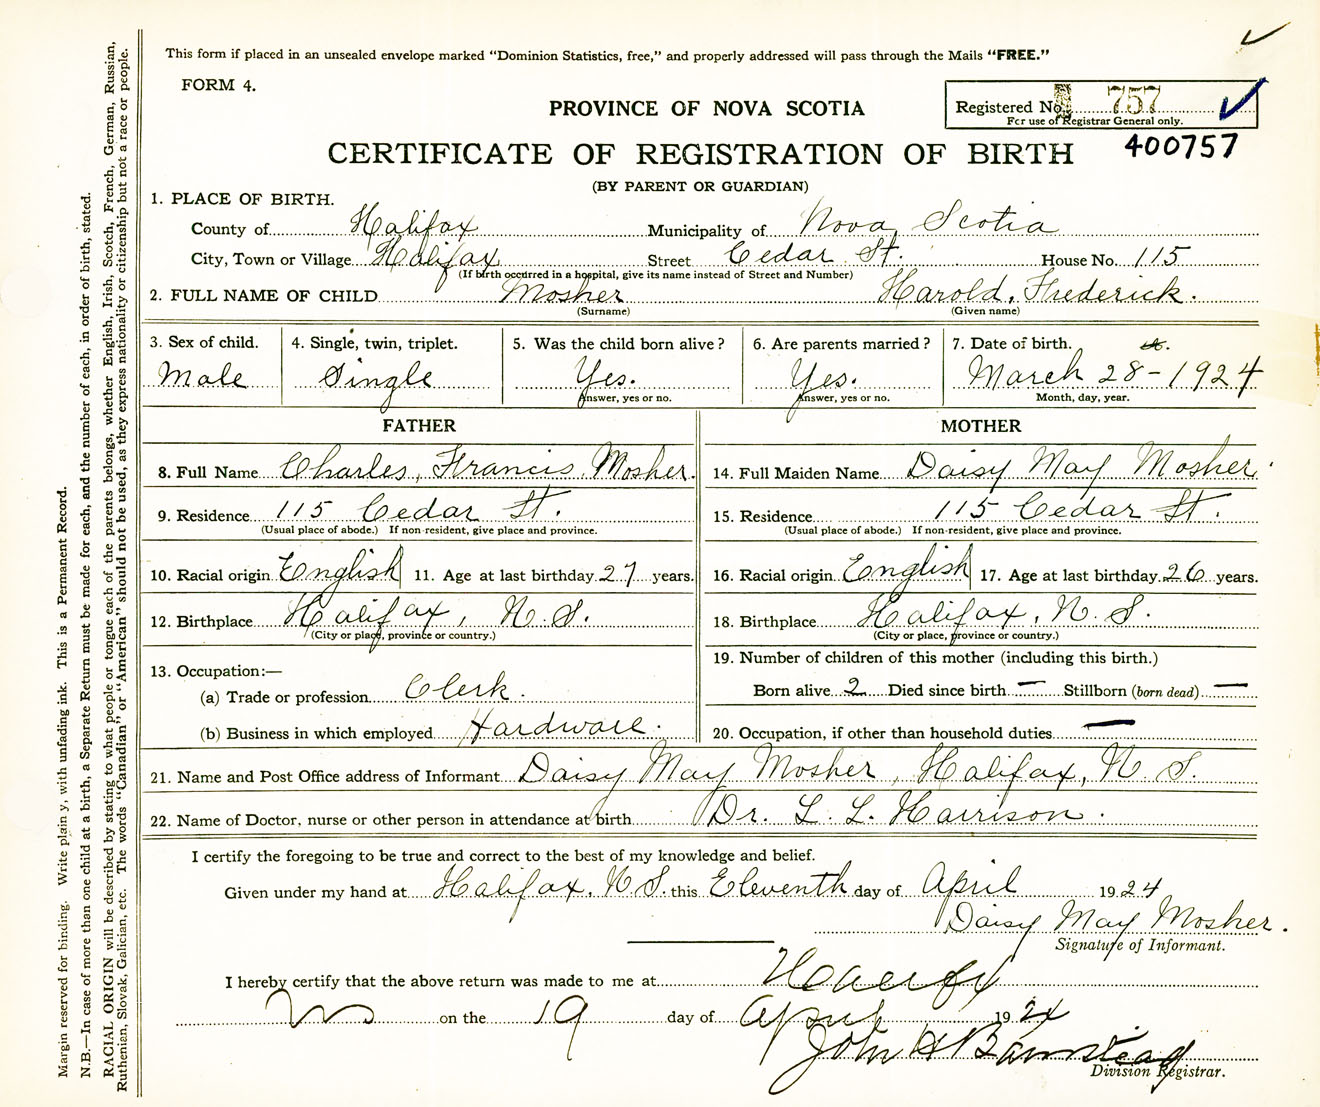 This form if placed in an unsealed envelope marked "Dominion Statistics, free," and properly addressed will pass through the Mails "FREE."
FORM 4.
Registered No. 757
For use of Registrar General only.
400757
PROVINCE OF NOVA SCOTIA
CERTIFICATE OF REGISTRATION OF BIRTH
(BY PARENT OR GUARDIAN)
1. PLACE OF BIRTH.
County of Halifax Municipality of Nova Scotia
City, Town or Village Halifax Street Cedar St. House No. 115
(If birth occurred in a hospital, give its name instead of Street and Number)
2. FULL NAME OF CHILD Mosher Harold, Frederick.
(Surname) (Given name)
3. Sex of child. 4. Single, twin, triplet. 5. Was the child born alive? 6. Are parents married? 7. Date of birth.
Male Single Yes. Yes. March 28-1924
Answer, yes or no. Answer, yes or no. Month, day, year.
FATHER
8. Full Name Charles, Francis Mosher.
9. Residence 115 Cedar St.
(Usual place of abode.) If non-resident, give place and province.
10. Racial origin English 11. Age at last birthday 27 years.
12. Birthplace Halifax, N.S.
(City or place, province or country.)
13. Occupation:—
(a) Trade or profession Clerk.
(b) Business in which employed Hardware.
MOTHER
14. Full Maiden Name Daisy May Mosher
15. Residence 115 Cedar St.
(Usual place of abode.) If non-resident, give place and province.
16. Racial origin English 17. Age at last birthday 26 years.
18. Birthplace Halifax, N.S.
(City or place, province or country.)
19. Number of children of this mother (including this birth.)
Born alive 2 Died since birth — Stillborn (born dead) —
20. Occupation, if other than household duties —
21. Name and Post Office address of Informant Daisy May Mosher, Halifax, N.S.
22. Name of Doctor, nurse or other person in attendance at birth Dr. L. L. Harrison.
I certify the foregoing to be true and correct to the best of my knowledge and belief.
Given under my hand at Halifax, N.S. this Eleventh day of April 1924
Daisy May Mosher.
Signature of Informant.
I hereby certify that the above return was made to me at Halifax
on the 19 day of April 1924
John H Barnstead
Division Registrar.
Margin reserved for binding. Write plainly, with unfading ink. This is a Permanent Record.
N.B.—In case of more than one child at a birth, a Separate Return must be made for each, and the number of each, in order of birth, stated.
RACIAL ORIGIN will be described by stating to what people or tongue each of the parents belongs, whether English, Irish, Scotch, French, German, Russian,
Ruthenian, Slovak, Galician, etc. The words "Canadian" or "American" should not be used, as they express nationality or citizenship but not a race or people.